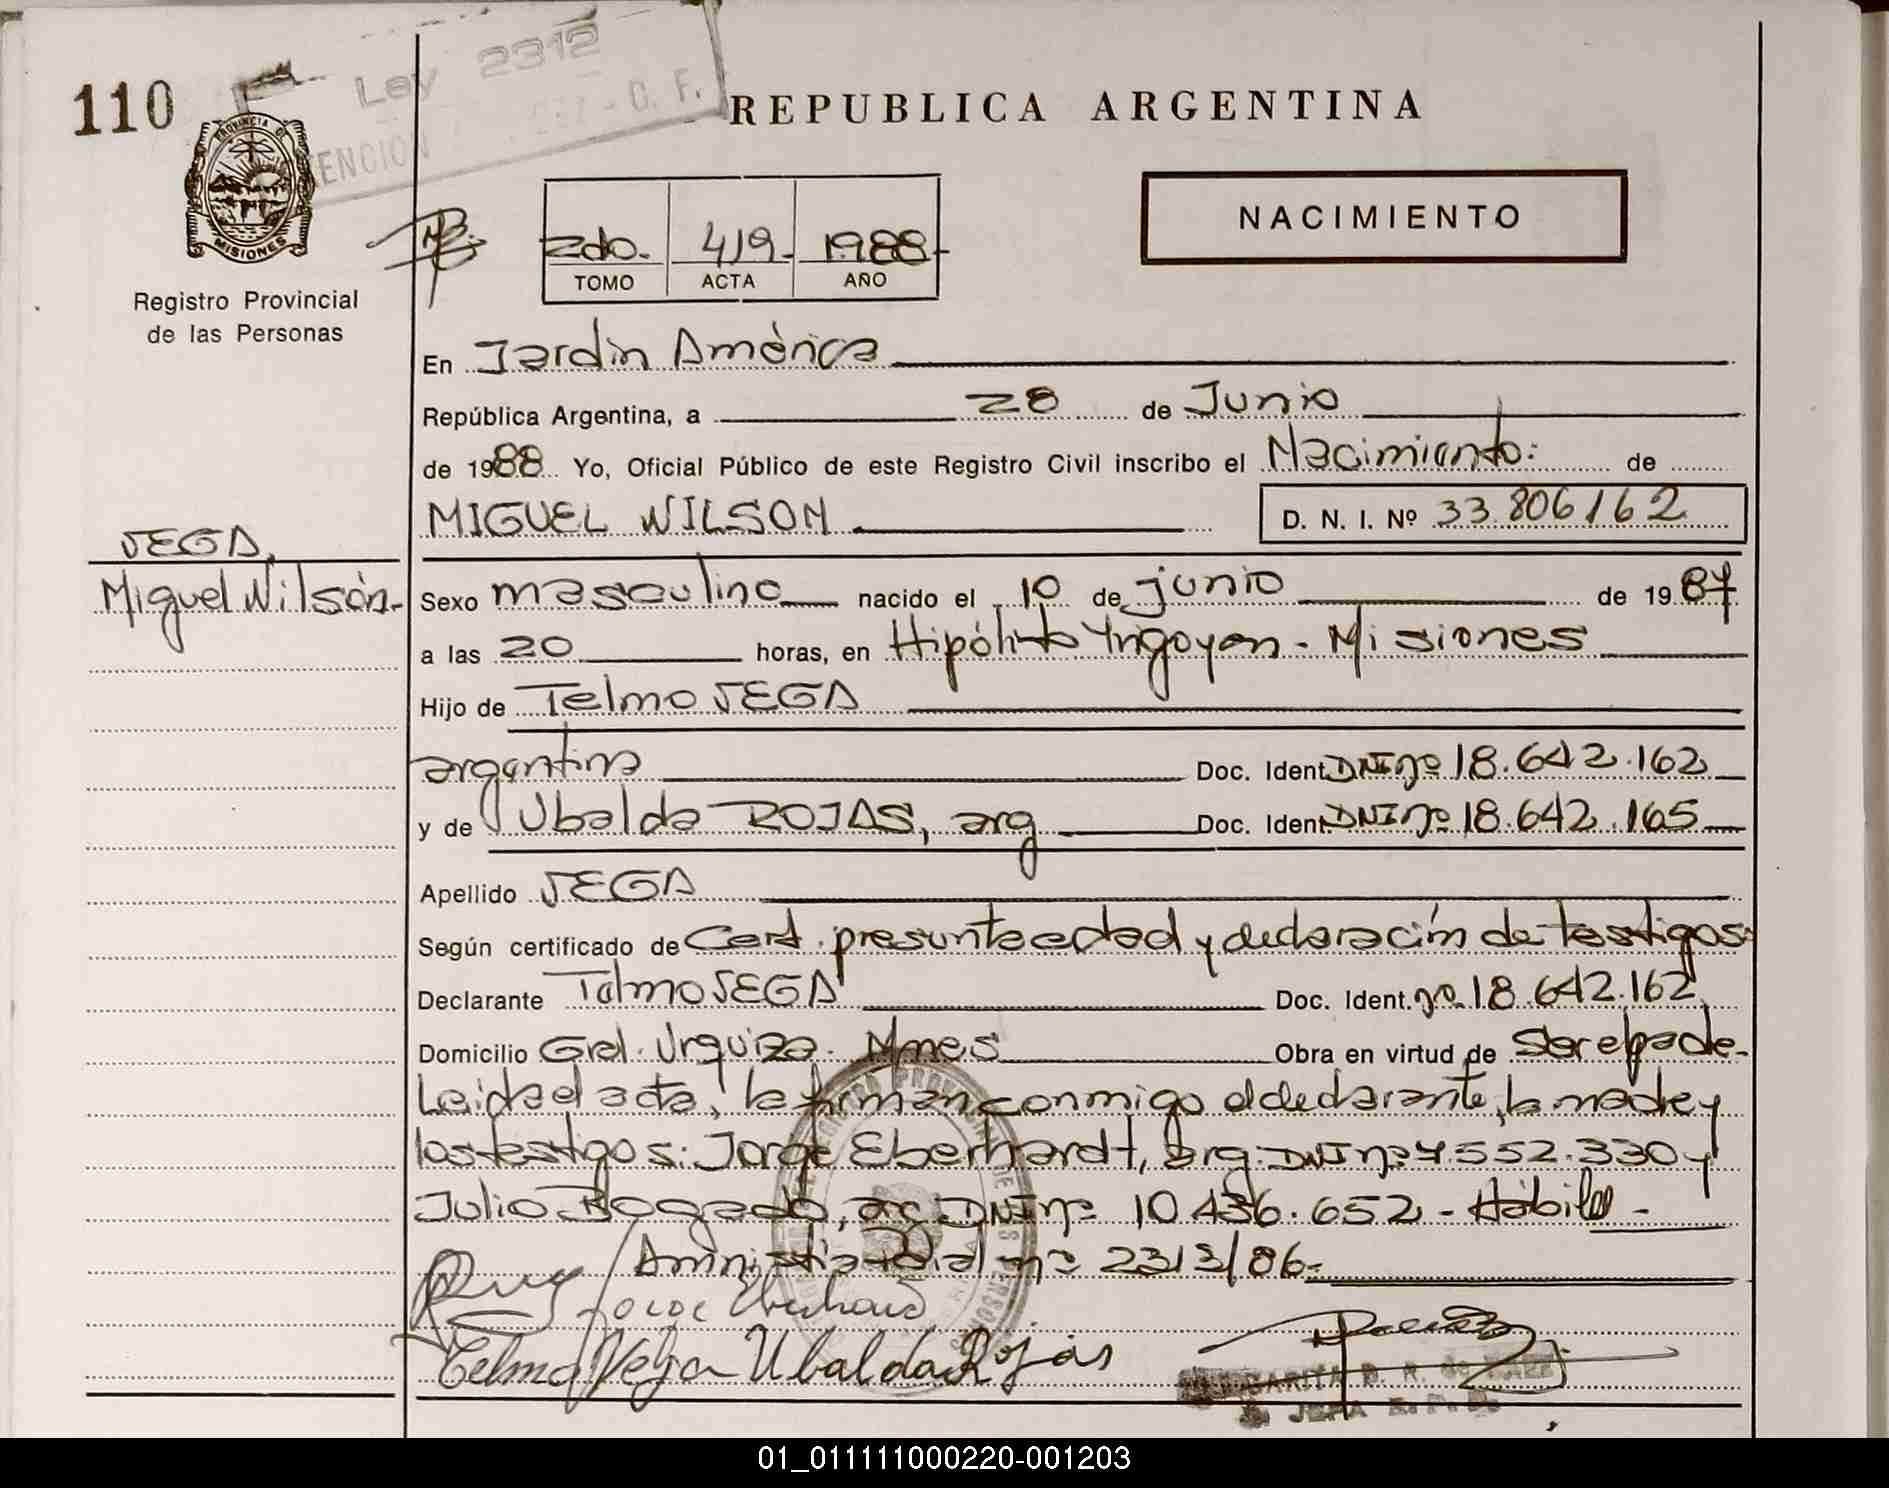 110
Ley 2312
REPUBLICA ARGENTINA
PROVINCIA DE
MISIONES
Registro Provincial
de las Personas
2do. 419- 1988-
TOMO ACTA AÑO
NACIMIENTO
En Jardin América
República Argentina, a 28 de Junio
de 1988 Yo, Oficial Público de este Registro Civil inscribo el Nacimiento: de
MIGUEL WILSON D. N. I. Nº 33.806162
VEGA,
Miguel Wilsón.-
Sexo masculino nacido el 10 de junio de 1987
a las 20 horas, en Hipólito Yrigoyen - Misiones
Hijo de Telmo VEGA
argentino Doc. Ident. DNI nº 18.642.162
y de Ubalda ROJAS, arg Doc. Ident. DNI nº 18.642.165
Apellido VEGA
Según certificado de Cert. presunta edad y declaración de testigos
Declarante Telmo VEGA Doc. Ident. nº 18.642.162
Domicilio Gral. Urquiza. Mnes Obra en virtud de Ser el padre-
Leida el acta, la firman conmigo el declarante, la madre y
los testigos: Jorge Eberhardt, arg. DNI nº 7.552.330 y
Julio Bogado, arg DNI nº 10.436.652 - Hábil
Amnistia nº 2313/86-
Jorge Eberhard
Telmo Vega Ubalda Rojas
01_011111000220-001203